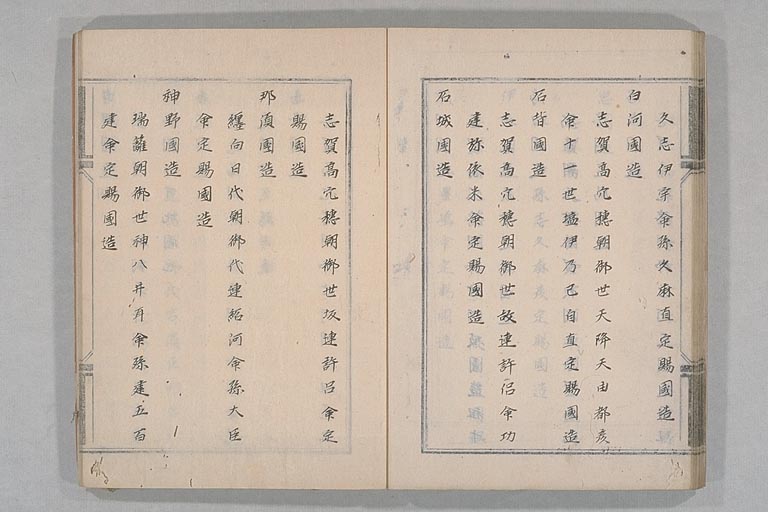 久志伊宗命孫久麻直定賜國造
白河國造
志賀高穴穗朝御世天降天由都彥
命十一世塩伊乃己自直定賜國造
石背國造
志賀高穴穗朝御世故連許侶命功
建弥依米命定賜國造
石城國造
志賀高穴穗朝御世坂連許呂命定
賜國造
那須國造
纏向日代朝御代連紹河命孫大臣
命定賜國造
神野國造
瑞籬朝御世神八井耳命孫建五百
建命定賜國造